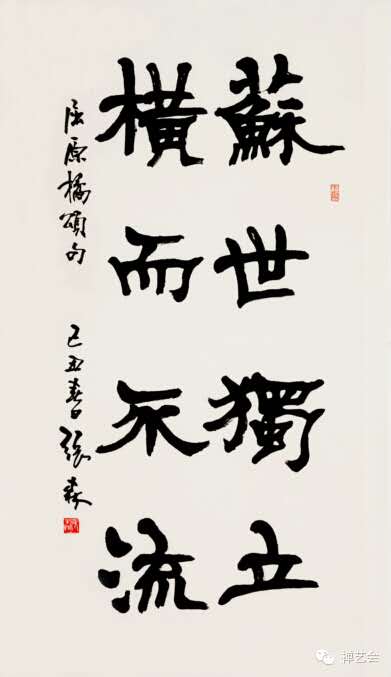 蘇世獨立
橫而不流
屈原橘頌句
己丑春日張森
禅艺会